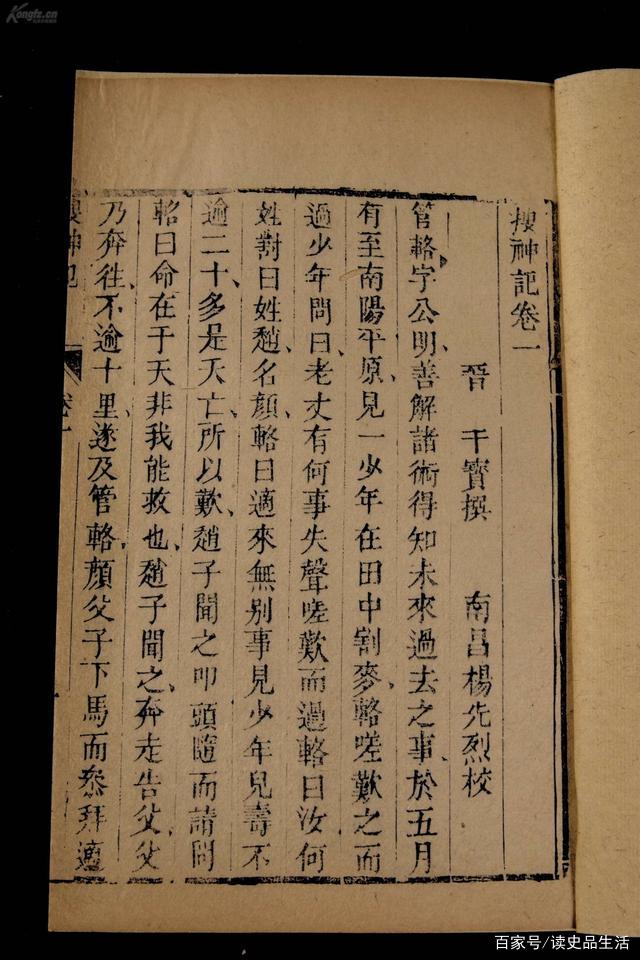 搜神記卷一
晉 干寶撰 南昌楊先烈校
管輅字公明、善解諸術得知未來過去之事、於五月
有至南陽平原、見一少年在田中割麥、輅嗟歎之而
過少年問曰、老丈有何事失聲嗟歎而過輅曰汝何
姓對曰姓趙、名顏、輅曰適來無別事見少年兒壽不
逾二十、多是夭亡、所以歎、趙子聞之叩頭隨而請問
輅曰命在于天非我能救也、趙子聞之、奔走告父、父
乃奔往、不逾十里、遂及管輅、顏父子下馬而叅拜適
搜神記
卷一
Kongfz.cn
百家号/读史品生活